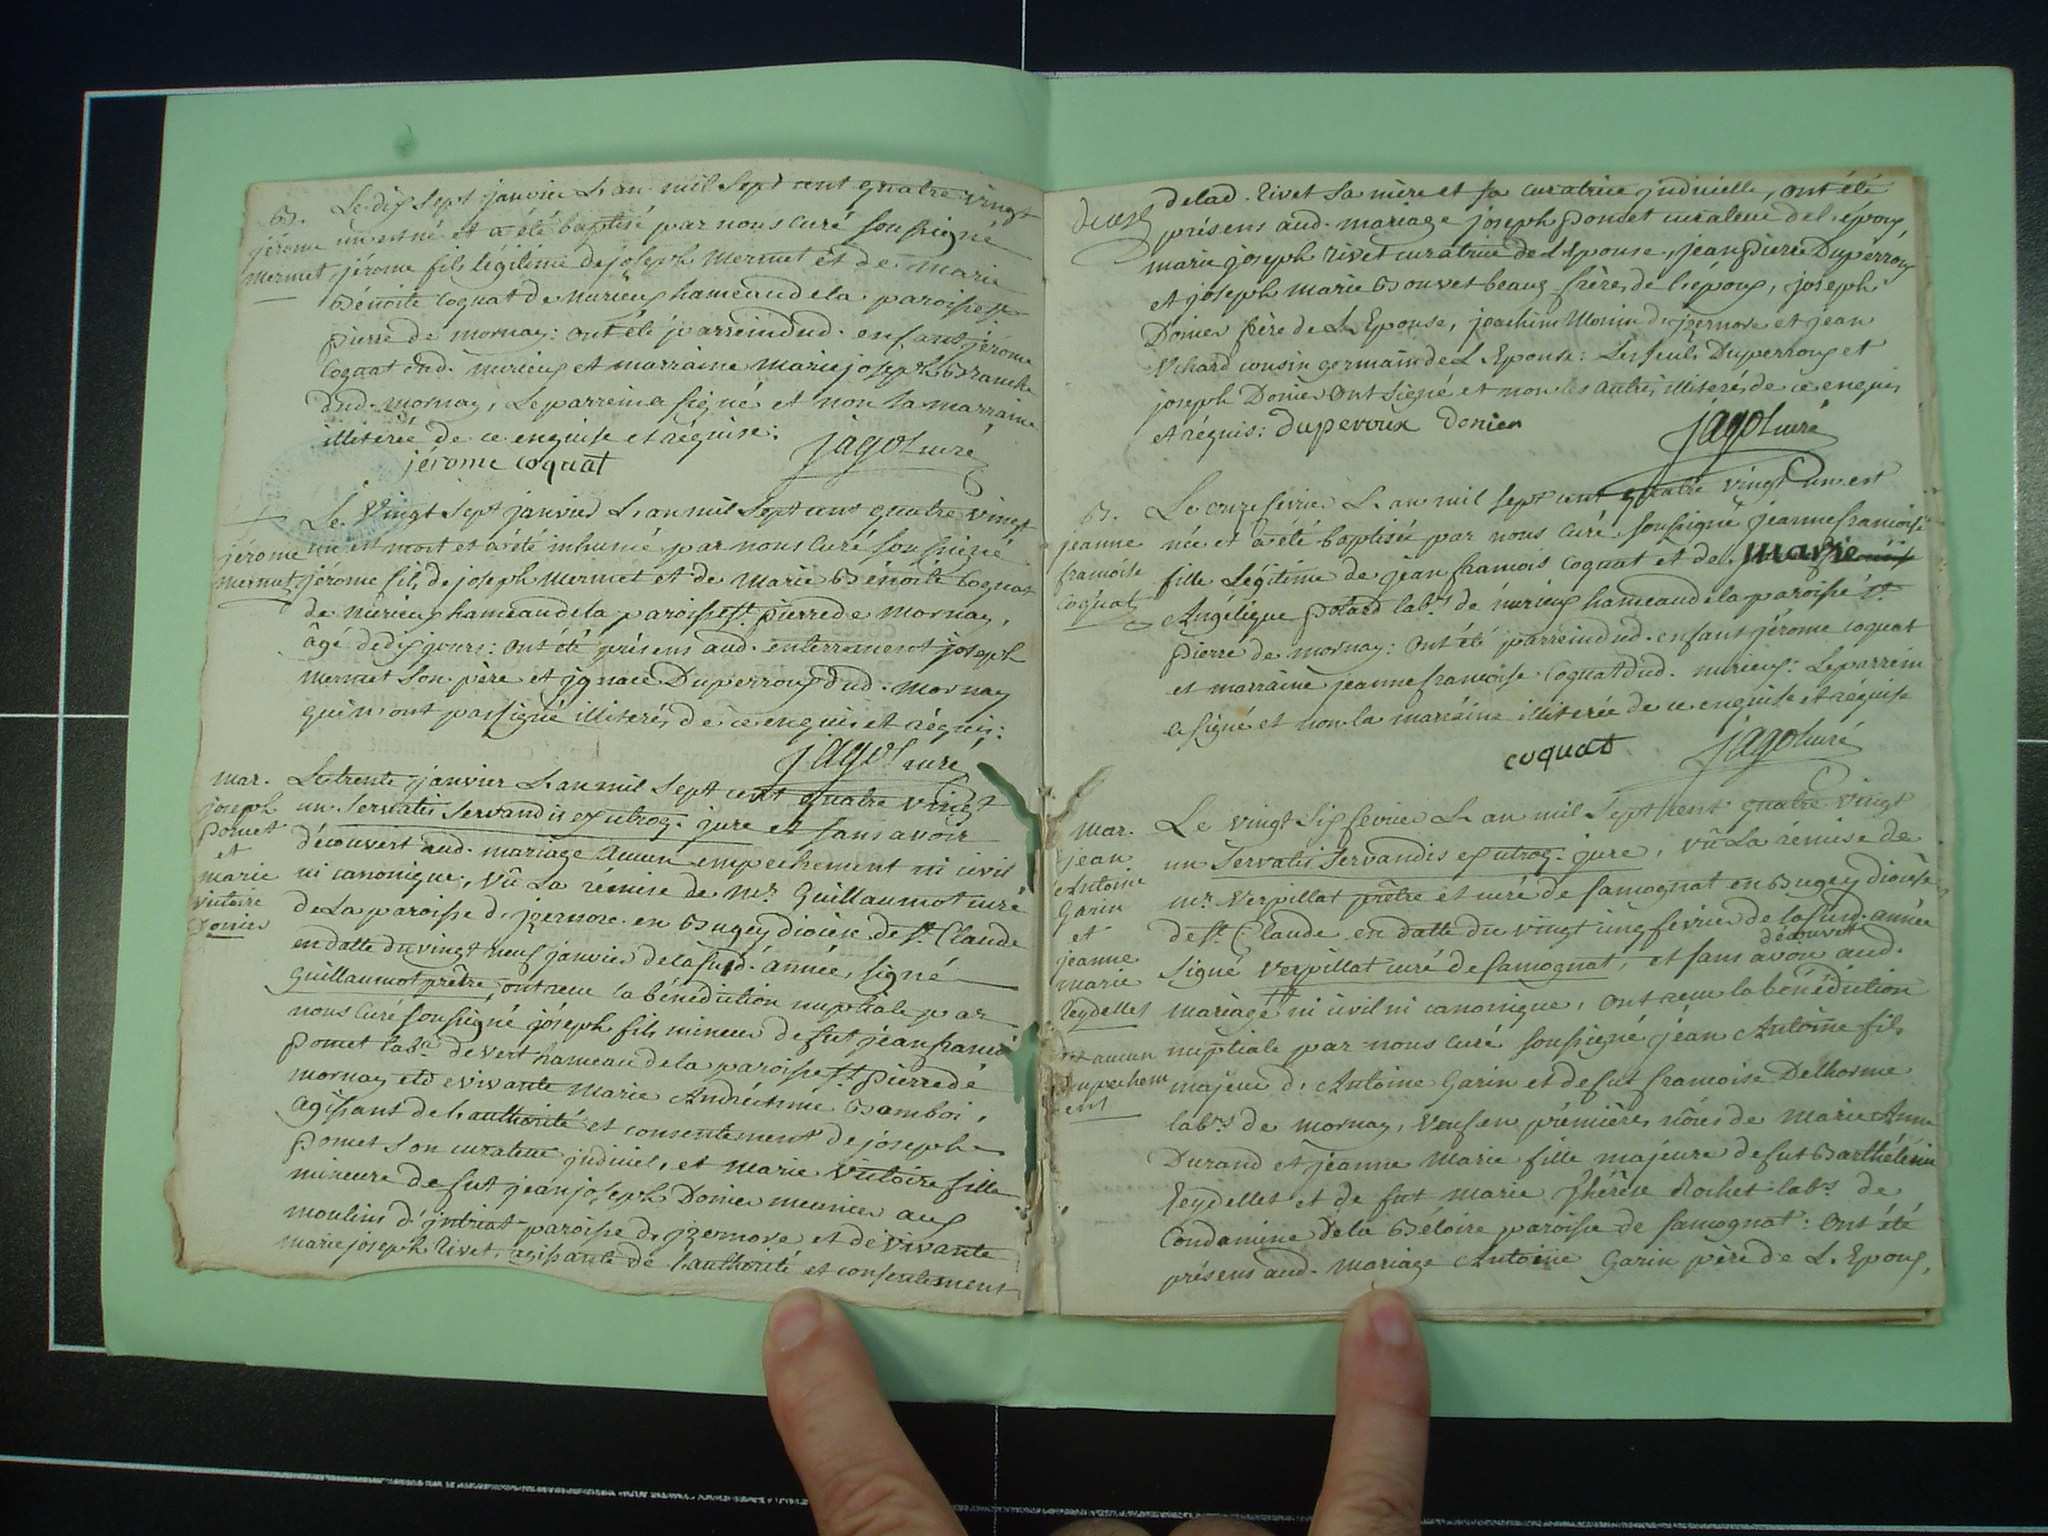 B.
jérome
mermet
Le dix sept janvier L'an mil sept cent quatre vingt
un est né et a été baptisé par nous curé soussigné
jérome fils légitime de joseph Mermet et de Marie
Bénoite Coquat de nurieux hameau de la paroisse st
pierre de mornay: ont été parrein dud. enfant jérome
Coquat dud. nurieux et marraine Marie joseph Branche
dud. mornay, Le parrein a signé et non la marraine
illiterée de ce enquise et réquise:
jérome coquat jagot curé
jérome
mermet
Le Vingt sept janvier L'an mil sept cent quatre vingt
un est mort et a été inhumé par nous curé soussigné
jérome fils de joseph Mermet et de Marie Bénoite Coquat
de nurieux hameau de la paroisse st. pierre de Mornay,
âgé de dix jours: ont été présens aud. enterrement joseph
Mermet son père et jgnace Duperroux dud. Mornay
qui n'ont pas signé illiterés de ce enquis et réquis:
jagot curé
mar.
joseph
pomet
et
marie
victoire
Donier
Le trente janvier L'an mil sept cent quatre vingt
un Servatis Servandis ex utroq. jure et sans avoir
découvert aud. mariage aucun empechement ni civil
ni canonique, vû La rémise de Mr. Guillaumot curé
de La paroisse d'jzernore en Bugey diocèse de st. Claude
en datte du vingt neuf janvier de la susd. année, signé
Guillaumot prêtre, ont reçu la bénédiction nuptiale par
nous curé soussigné joseph fils mineur de fut jean francois
pomet labr. de Vers hameau de la paroisse st. pierre de
mornay et de vivante Marie Andréctine Bamboi,
agissant de l'authorité et consentement de joseph
pomet son curateur judiciel, et Marie Victoire fille
mineure de fut jean joseph Donier meunier aux
moulins d'jntriat paroisse d'jzernore et de vivante
marie joseph rivet, agissante de l'authorité et consentement
de lad. rivet sa mère et sa curatrice judicielle, ont été
présens aud. mariage joseph pomet curateur de l'époux,
marie joseph rivet curatrice de L'Epouse, jean pierre Duperroux
et joseph marie Bouvet beaux frères de l'époux, joseph
Donier frère de L'Epouse, joachim Monin d'jzernore et jean
Uchard cousin germain de L'Epouse: Les seuls Duperroux et
joseph Donier ont signé et non les autres illiterés de ce enquis
et réquis: duperoux donier jagot curé
B.
jeanne
francoise
Coquat
Le onze fevrier L'an mil sept cent quatre vingt un est
née et a été baptisée par nous curé soussigné jeanne francoise
fille Légitime de jean francois Coquat et de marie
Angélique potard labrs. de nurieux hameau de la paroisse st.
pierre de mornay: ont été parrein dud. enfant jérome Coquat
et marraine jeanne francoise Coquat dud. nurieux: Le parrein
a signé et non la marraine illiterée de ce enquise et réquise
coquat jagot curé
mar.
jean
Antoine
Garin
et
jeanne
marie
reydellet
et aucun
empechem
ent
Le vingt six fevrier L'an mil sept cent quatre vingt
un Servatis Servandis ex utroq. jure, vû La rémise de
mr. Verpillat prêtre et curé de samognat en Bugey diocèse
de st. Claude en datte du vingt cinq fevrier de la susd. année
signé Verpillat curé de samognat, et sans avoir découvert aud.
mariage ni civil ni canonique, ont reçu la bénédiction
nuptiale par nous curé soussigné jéan Antoine fils
majeur d'Antoine Garin et de fut francoise Delhorme
labrs. de mornay, veuf en prémières nôces de Marie Anne
Durand et jeanne Marie fille majeure de fut Barthélémi
reydellet et de fut marie thérèse Rochet labrs. de
Condamine de la Béloire paroisse de samognat: ont été
présens aud. mariage Antoine Garin père de L'Epoux,